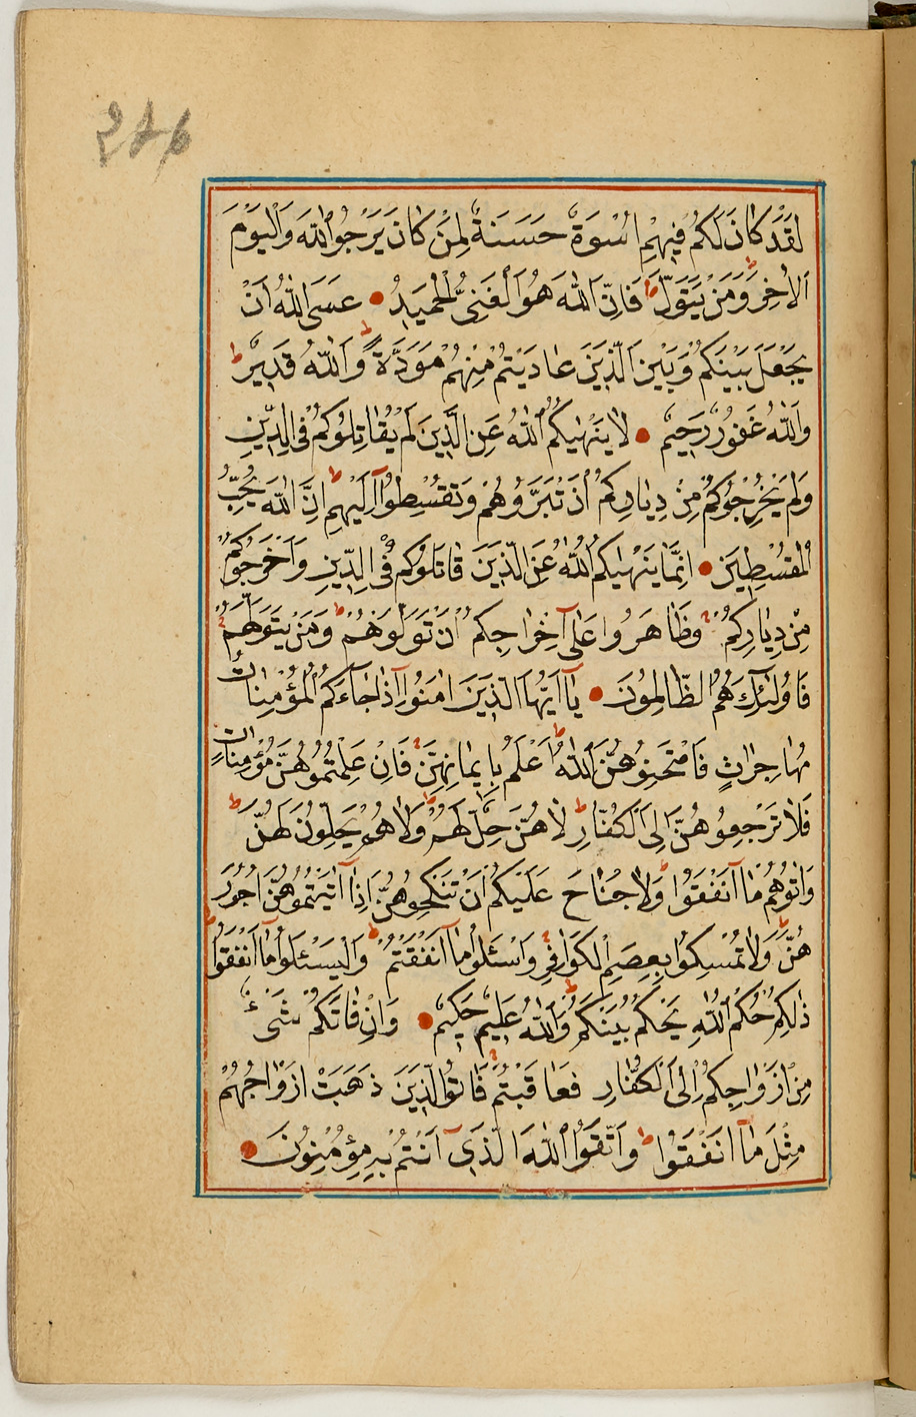 276
لَقَدْ كَانَ لَكُمْ فِيهِمْ اُسْوَةٌ حَسَنَةٌ لِمَنْ كَانَ يَرْجُوا اللّٰهَ وَالْيَوْمَ
الْاٰخِرَ ط وَمَنْ يَتَوَلَّ فَاِنَّ اللّٰهَ هُوَ الْغَنِىُّ الْحَمِيدُ ● عَسَى اللّٰهُ اَنْ
يَجْعَلَ بَيْنَكُمْ وَبَيْنَ الَّذِينَ عَادَيْتُمْ مِنْهُمْ مَوَدَّةً ط وَاللّٰهُ قَدِيرٌ ط
وَاللّٰهُ غَفُورٌ رَحِيمٌ ● لَا يَنْهٰيكُمُ اللّٰهُ عَنِ الَّذِينَ لَمْ يُقَاتِلُوكُمْ فِى الدِّينِ
وَلَمْ يُخْرِجُوكُمْ مِنْ دِيَارِكُمْ اَنْ تَبَرُّوهُمْ وَتُقْسِطُوٓا اِلَيْهِمْ ط اِنَّ اللّٰهَ يُحِبُّ
الْمُقْسِطِينَ ● اِنَّمَا يَنْهٰيكُمُ اللّٰهُ عَنِ الَّذِينَ قَاتَلُوكُمْ فِى الدِّينِ وَاَخْرَجُوكُمْ
مِنْ دِيَارِكُمْ وَظَاهَرُوا عَلٰٓى اِخْرَاجِكُمْ اَنْ تَوَلَّوْهُمْ ط وَمَنْ يَتَوَلَّهُمْ
فَاُولٰٓئِكَ هُمُ الظَّالِمُونَ ● يَآ اَيُّهَا الَّذِينَ اٰمَنُوٓا اِذَا جَآءَكُمُ الْمُؤْمِنَاتُ
مُهَاجِرَاتٍ فَامْتَحِنُوهُنَّ ط اَللّٰهُ اَعْلَمُ بِاِيمَانِهِنَّ فَاِنْ عَلِمْتُمُوهُنَّ مُؤْمِنَاتٍ
فَلَا تَرْجِعُوهُنَّ اِلَى الْكُفَّارِ ط لَا هُنَّ حِلٌّ لَهُمْ وَلَا هُمْ يَحِلُّونَ لَهُنَّ ط
وَاٰتُوهُمْ مَآ اَنْفَقُوا ط وَلَا جُنَاحَ عَلَيْكُمْ اَنْ تَنْكِحُوهُنَّ اِذَآ اٰتَيْتُمُوهُنَّ اُجُورَ
هُنَّ ط وَلَا تُمْسِكُوا بِعِصَمِ الْكَوَافِرِ وَاسْئَلُوا مَآ اَنْفَقْتُمْ وَلْيَسْئَلُوا مَآ اَنْفَقُوا ط
ذٰلِكُمْ حُكْمُ اللّٰهِ يَحْكُمُ بَيْنَكُمْ ط وَاللّٰهُ عَلِيمٌ حَكِيمٌ ● وَاِنْ فَاتَكُمْ شَىْءٌ
مِنْ اَزْوَاجِكُمْ اِلَى الْكُفَّارِ فَعَاقَبْتُمْ فَاٰتُوا الَّذِينَ ذَهَبَتْ اَزْوَاجُهُمْ
مِثْلَ مَآ اَنْفَقُوا ط وَاتَّقُوا اللّٰهَ الَّذِىٓ اَنْتُمْ بِهِ مُؤْمِنُونَ ●